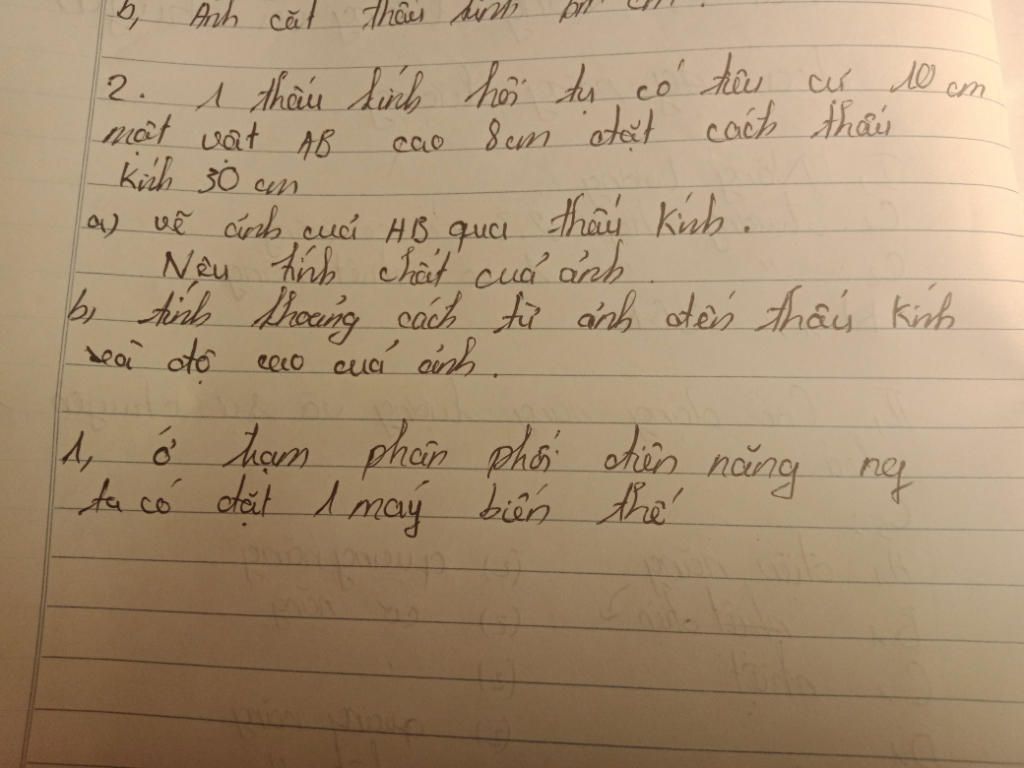 b, Anh cắt thấu kính
2. 1 thấu kính hội tụ có tiêu cự 10 cm
một vật AB cao 8cm đặt cách thấu
kính 30 cm
a) vẽ ảnh của AB qua thấu kính.
Nêu tính chất của ảnh.
b, tính khoảng cách từ ảnh đến thấu kính
và độ cao của ảnh.
1, ở trạm phân phối điện năng ng
ta có đặt 1 máy biến thế